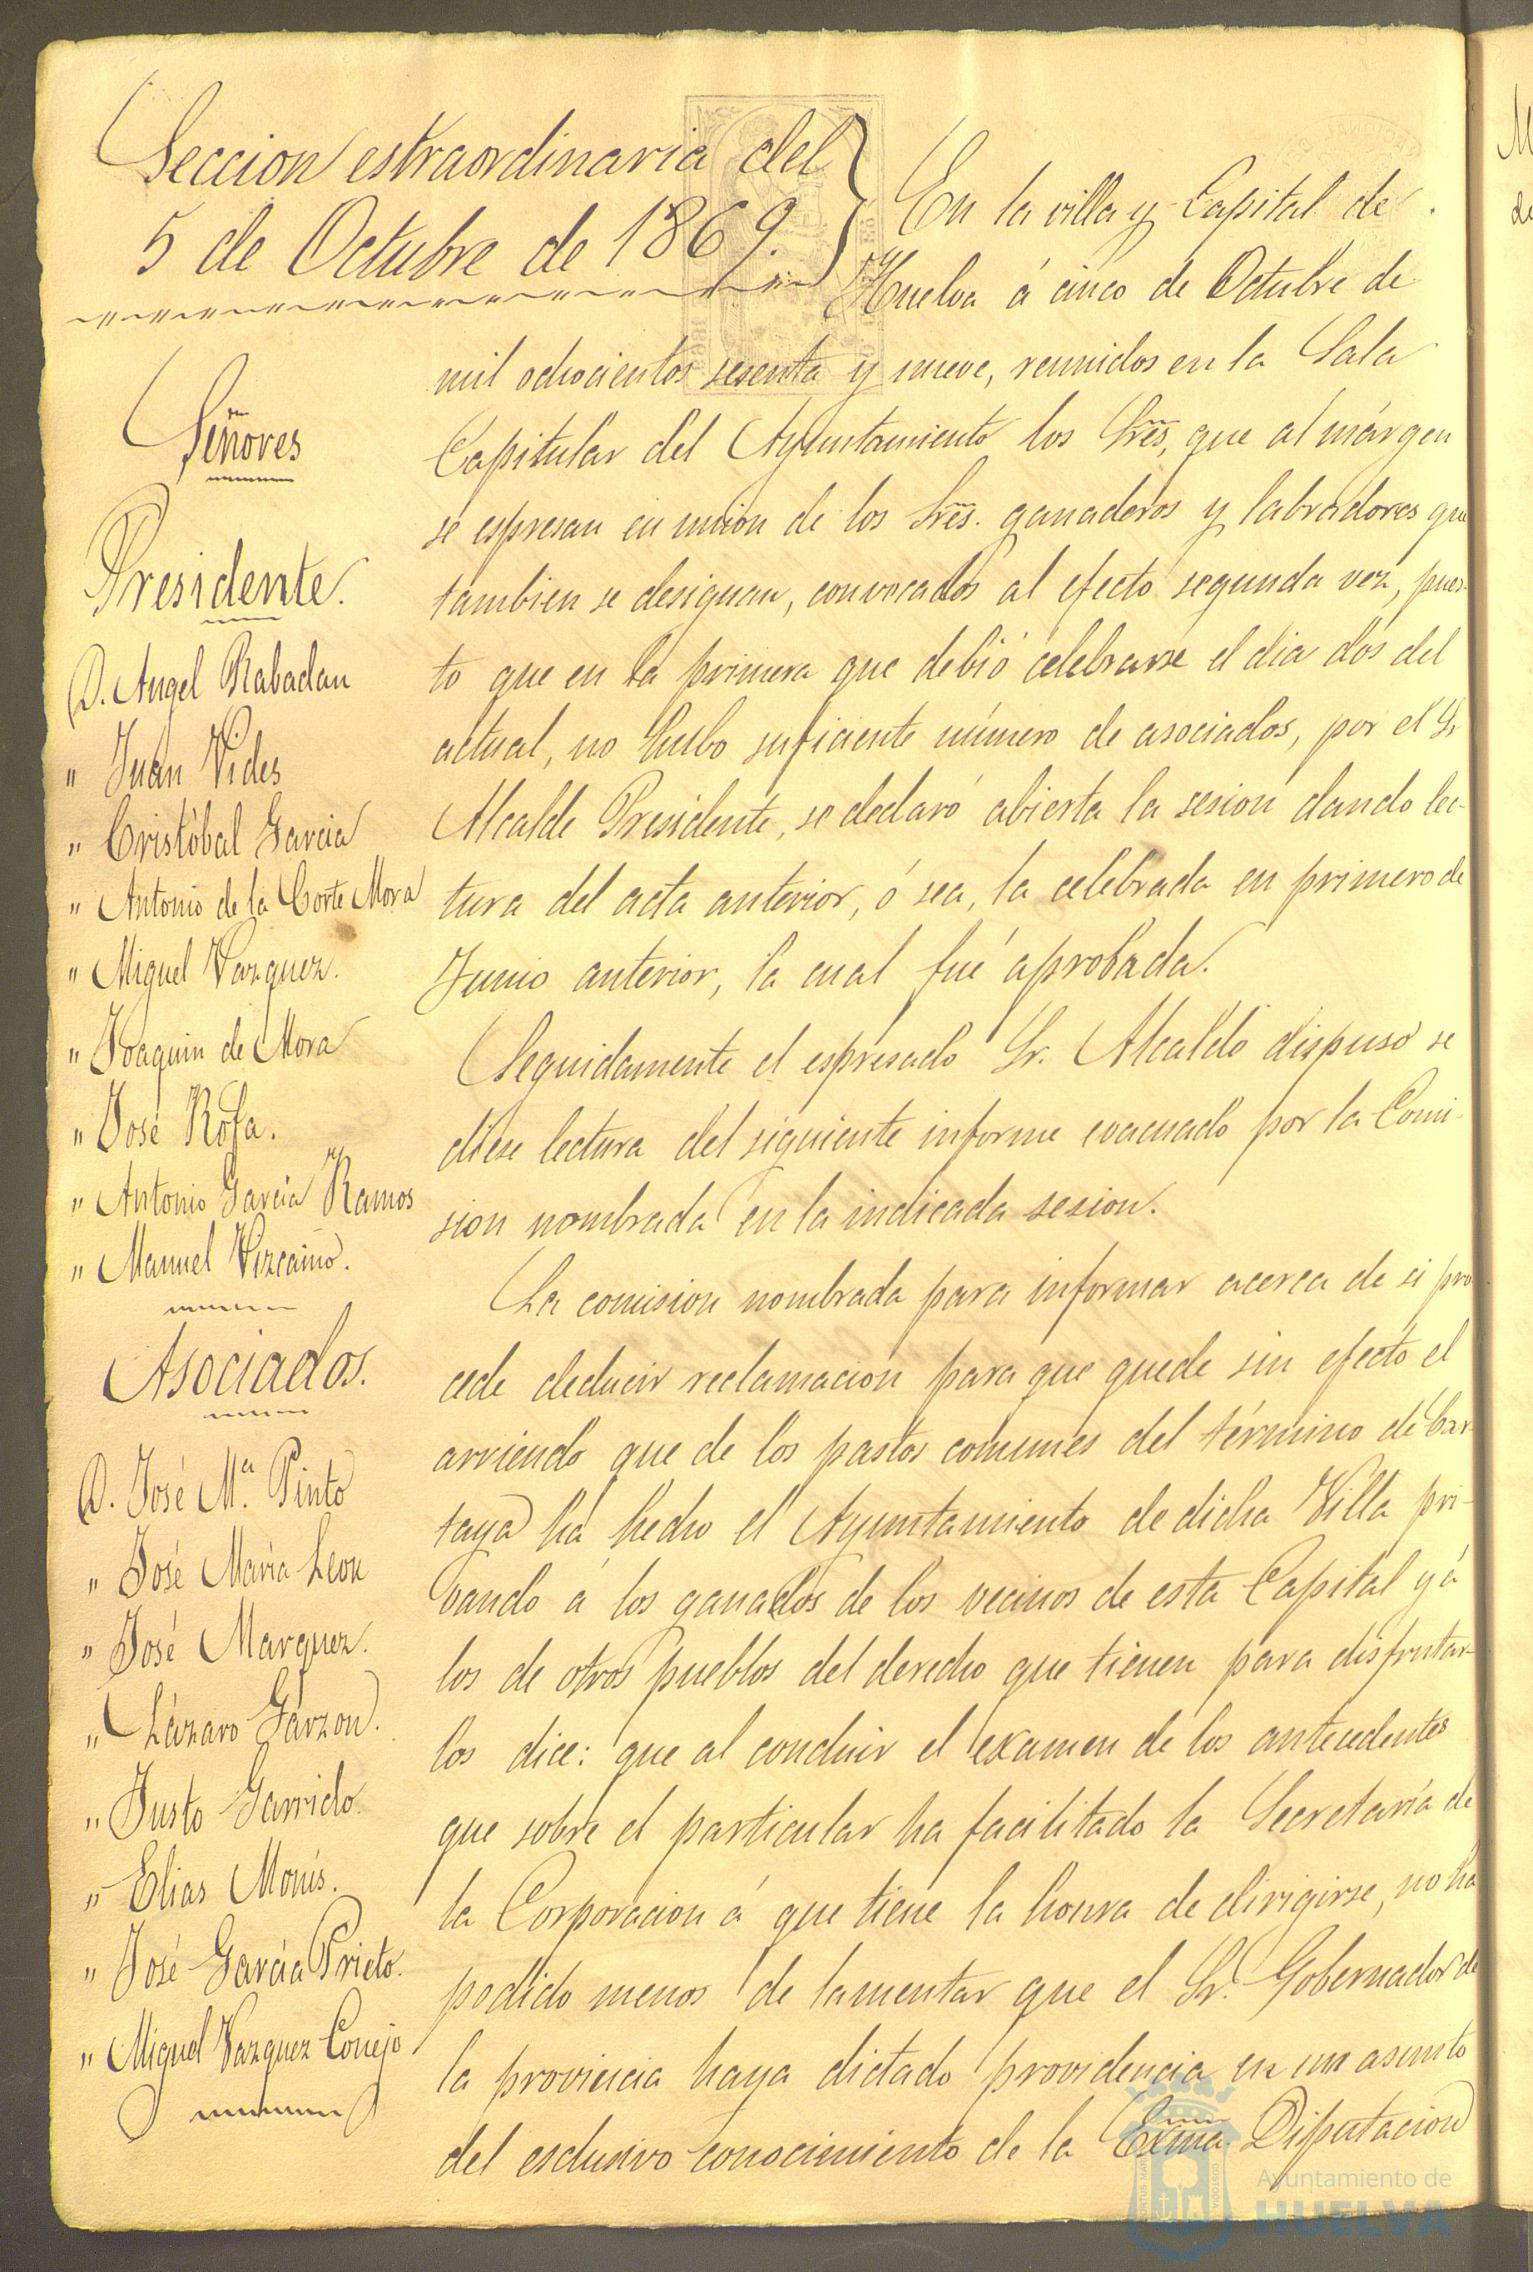 Seccion estraordinaria del
5 de Octubre de 1869.
Señores
Presidente.
D. Angel Rabadan
" Juan Vides
" Cristóbal Garcia
" Antonio de la Corte Mora
" Miguel Vazquez.
" Joaquin de Mora
" José Rofa.
" Antonio Garcia Ramos
" Manuel Vizcaino.
Asociados.
D. José Mª. Pinto
" José Maria Leon
" José Marquez.
" Lázaro Garzon.
" Justo Garrido.
" Elias Monis.
" José Garcia Prieto.
" Miguel Vazquez Conejo
En la villa y Capital de
Huelva á cinco de Octubre de
mil ochocientos sesenta y nueve, reunidos en la Sala
Capitular del Ayuntamiento los Sres, que al márgen
se espresan en union de los Sres. ganaderos y labradores que
tambien se designan, convocados al efecto segunda vez, pues-
to que en la primera que debió celebrarse el dia dos del
actual, no hubo suficiente número de asociados, por el Sr
Alcalde Presidente, se declaró abierta la sesion dando lec-
tura del acta anterior, ó sea, la celebrada en primero de
Junio anterior, la cual fué aprobada.
Seguidamente el espresado Sr. Alcalde dispuso se
diese lectura del siguiente informe evacuado por la Comi-
sion nombrada en la indicada sesion.
La comision nombrada para informar acerca de si pro
cede deducir reclamacion para que quede sin efecto el
arriendo que de los pastos comunes del término de Car-
taya ha hecho el Ayuntamiento de dicha Villa pri-
vando á los ganados de los vecinos de esta Capital y á
los de otros pueblos del derecho que tienen para disfrutar-
los dice: que al concluir el examen de los antecedentes
que sobre el particular ha facilitado la Secretaría de
la Corporacion á que tiene la honra de dirigirse, no ha
podido menos de lamentar que el Sr. Gobernador de
la provincia haya dictado providencia en un asunto
del esclusivo conocimiento de la Exma. Diputacion
Ayuntamiento de
HUELVA